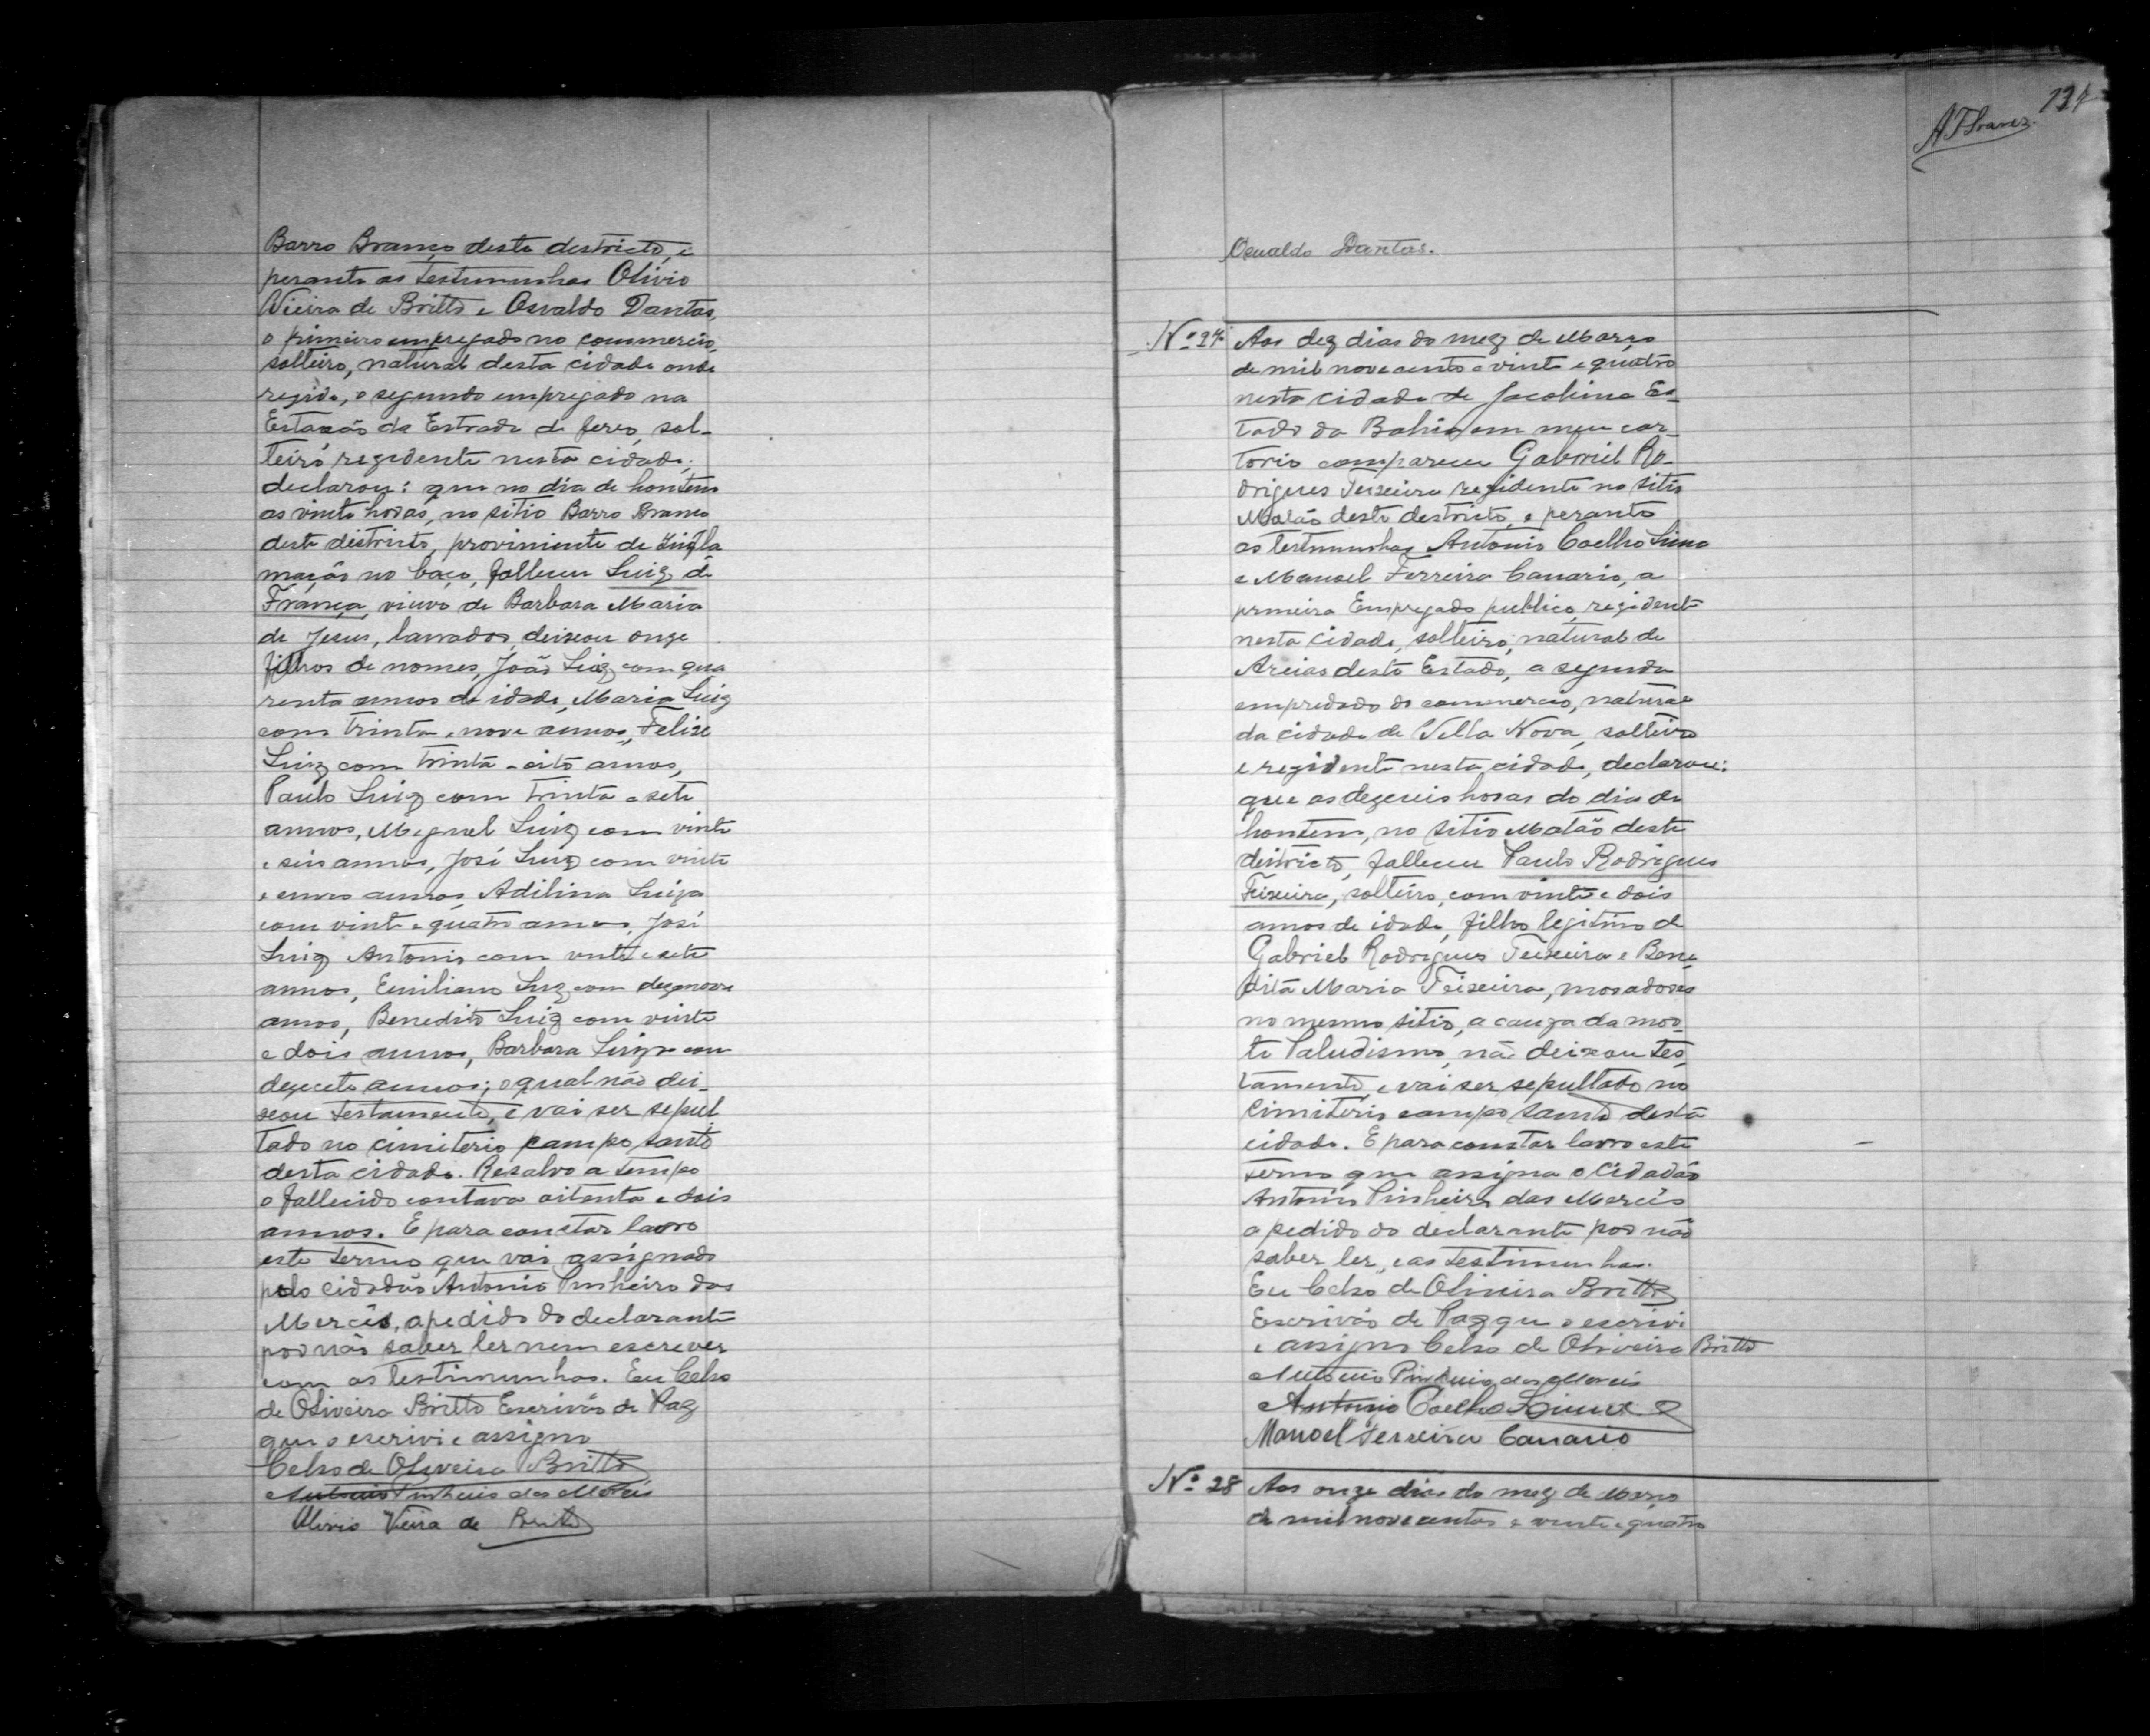 Barro Branco deste destricto, e
perante as testimunhas Olivio
Vieira de Britto e Osvaldo Dantas,
o primeiro empregado no commercio,
solteiro, natural desta cidade onde
rezide, o segundo empregado na
Estação da Estrada de ferro, sol-
teiro rezidente nesta cidade,
declarou: que no dia de hontem
as vinte horas, no sitio Barro Branco
deste districto, proviniente de
mação no baço, falleceu Luiz de
França, viuvo de Barbara Maria
de Jesus, lavrador, deixou onze
filhos de nomes, João Luiz com qua
renta annos de idade, Maria Luiz
com trinta e nove annos, Felix
Luiz com trinta e oito annos,
Paulo Luiz com trinta e sete
annos, Miguel Luiz com vinte
e seis annos, José Luiz com vinte
e cinco annos, Adilina Luiza
com vinte e quatro annos, José
Luiz Antonio com vinte e sete
annos, Emiliano Luiz com dezenove
annos, Benedito Luiz com vinte
e dois annos, Barbara Luiza com
dezecete annos; o qual não dei-
xou testamento, e vai ser sepul
tado no cimiterio campo santo
desta cidade. Resalvo a tempo
o fallecido contava oitenta e dois
annos. E para constar lavro
este termo que vai assignado
pelo cidadão Antonio Pinheiro das
Mercês, a pedido do declarante
por não saber ler nem escrever
com as testimunhas. Eu Celso
de Oliveira Britto Escrivão de Paz
que o escrivi e assigno
Celso de Oliveira Britto
Antonio Pinheiro das Mercês
Olivio Vieira de Britto
A.F. Soares.
Osvaldo Dantas.
Nº 27 Aos dez dias do mez de Março
de mil novecentos e vinte e quatro
nesta cidade de Jacobina Es-
tado da Bahia em meu car-
torio compareceu Gabriel Ro-
drigues Teixeira rezidente no sitio
deste destricto, e perante
as testimunhas Antonio Coelho Lima
e Manoel Ferreira Canario, a
primeira Empregado publico, rezidente
nesta cidade, solteiro, natural de
Areias deste Estado, a segunda
empredado do commercio, natural
da cidade de Villa Nova, solteiro
e rezidente nesta cidade, declarou:
que as dezeseis horas do dia de
hontem, no sitio deste
destricto, falleceu Paulo Rodrigues
Teixeira, solteiro, com vinte e dois
annos de idade, filho legitimo de
Gabriel Rodrigues Teixeira e Bene
dita Maria Teixeira, moradores
no mesmo sitio, a cauza da mor-
te Paludismo, não deixou tes
tamento, e vai ser sepultado no
cimiterio campo santo desta
cidade. E para constar lavro este
termo que assigna o cidadão
Antonio Pinheiro das Mercês
a pedido do declarante por não
saber ler, e as testimunhas.
Eu Celso de Oliveira Britto
Escrivão de Paz que o escrivi
e assigno Celso de Oliveira Britto
Antonio Pinheiro das Mercês
Antonio Coelho Lima
Manoel Ferreira Canario
Nº 28 Aos onze dias do mez de Março
de mil novecentos e vinte e quatro